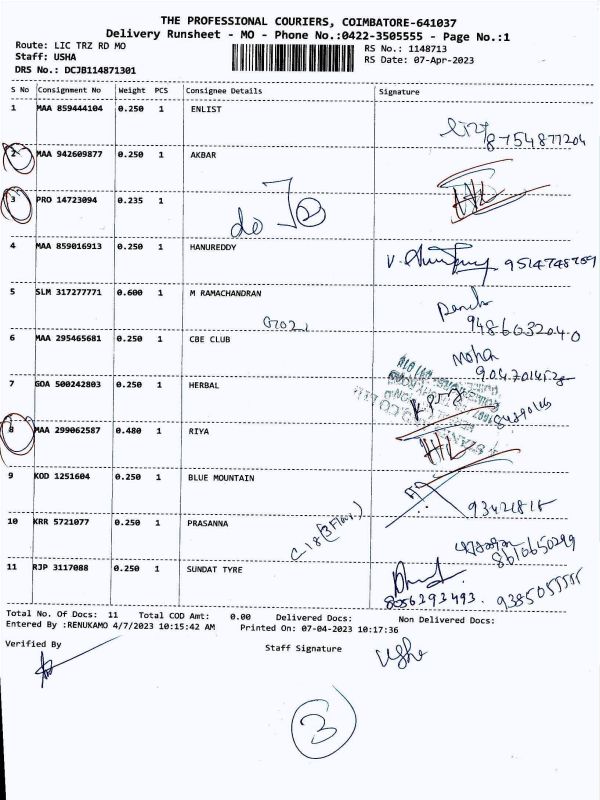 THE PROFESSIONAL COURIERS, COIMBATORE-641037
Delivery Runsheet - MO - Phone No.:0422-3505555 - Page No.:1
Route: LIC TRZ RD MO
RS No.: 1148713
Staff: USHA
RS Date: 07-Apr-2023
DRS No.: DCJB114871301
S No Consignment No Weight PCS Consignee Details Signature
1 MAA 859444104 0.250 1 ENLIST
8754877204
2 MAA 942609877 0.250 1 AKBAR
3 PRO 14723094 0.235 1
do
4 MAA 859016913 0.250 1 HANUREDDY
9514748759
5 SLM 317277771 0.600 1 M RAMACHANDRAN
9486032040
6 MAA 295465681 0.250 1 CBE CLUB
Moha
7 GOA 500242803 0.250 1 HERBAL
8 MAA 299062587 0.480 1 RIYA
9 KOD 1251604 0.250 1 BLUE MOUNTAIN
10 KRR 5721077 0.250 1 PRASANNA
8610650299
11 RJP 3117088 0.250 1 SUNDAT TYRE
8056393493. 9385055555
Total No. Of Docs: 11 Total COD Amt: 0.00 Delivered Docs: Non Delivered Docs:
Entered By :RENUKAMO 4/7/2023 10:15:42 AM Printed On: 07-04-2023 10:17:36
Verified By
Staff Signature
Usha
3